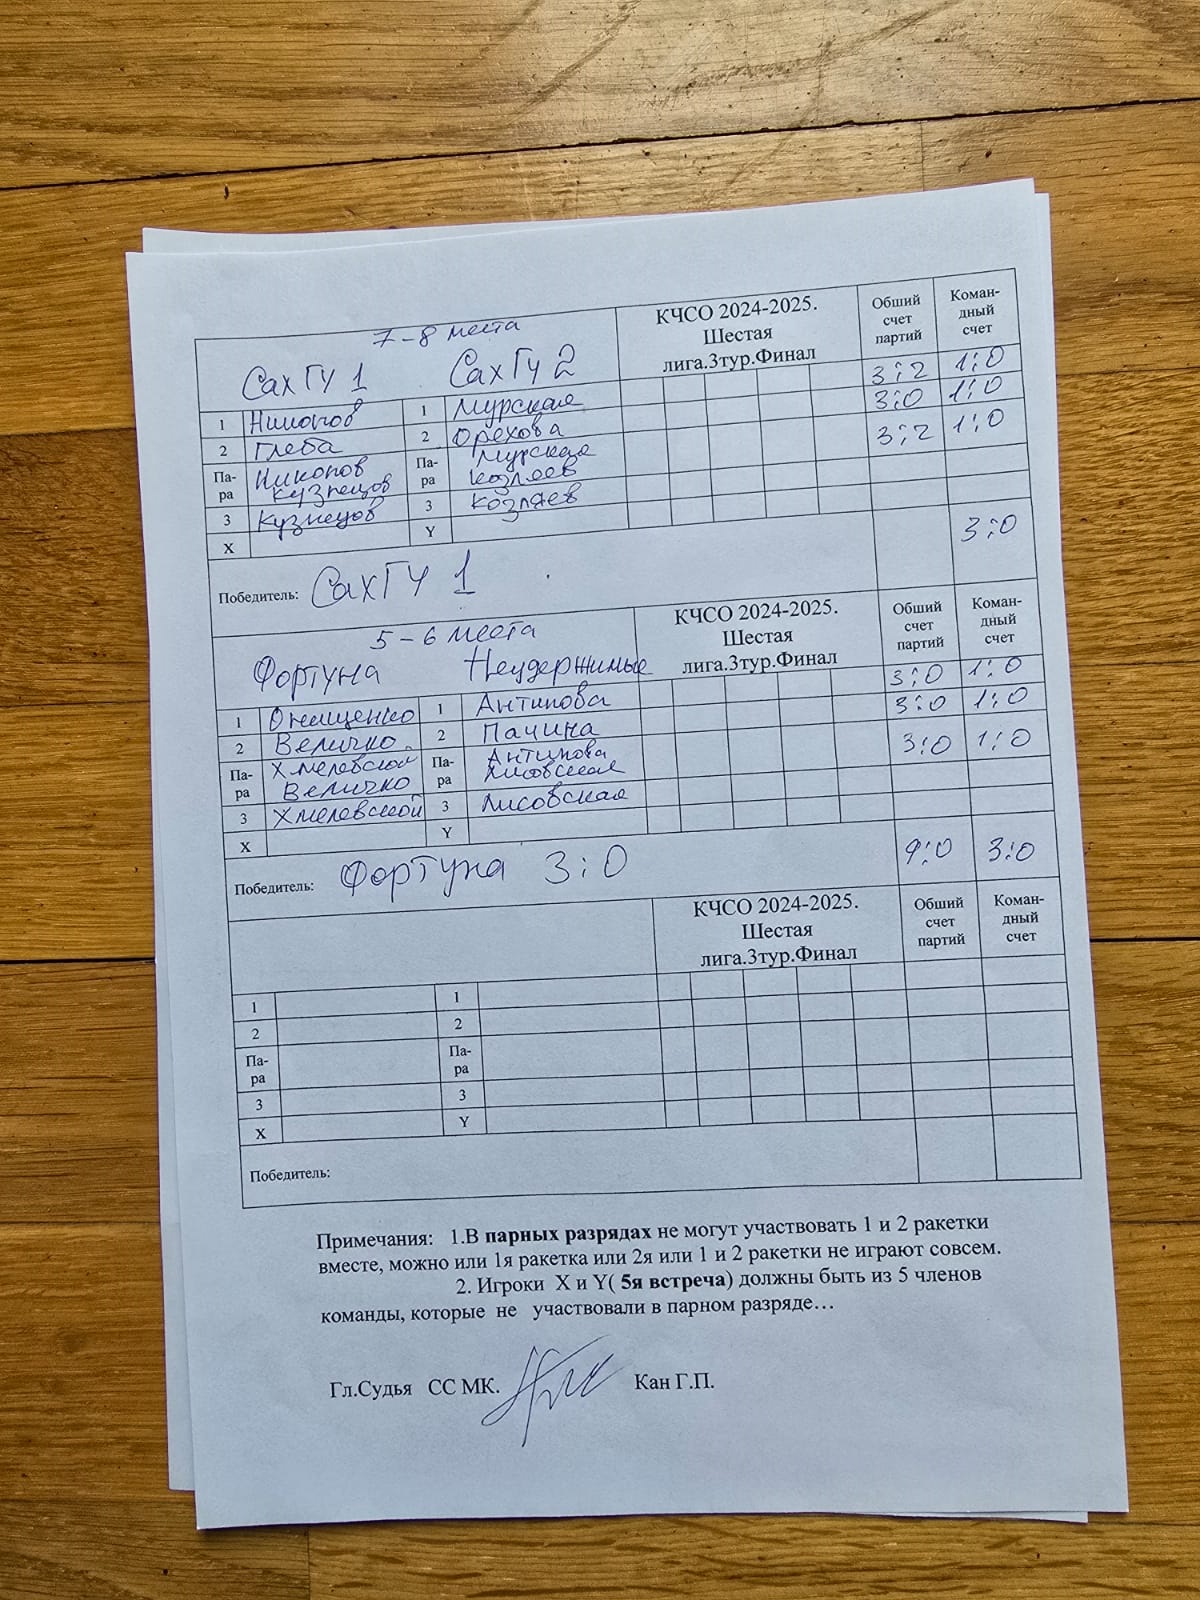 7-8 места
СахГУ 1 СахГУ 2
КЧСО 2024-2025.
Шестая
лига.3тур.Финал
Обший
счет
партий
Коман-
дный
счет
1 Никонов 1 Мурская 3:2 1:0
2 Глеба 2 Орехова 3:0 1:0
Па-
ра
Никонов
Кузнецов
Па-
ра
Мурская
Козляев
3:2 1:0
3 Кузнецов 3 Козляев
X Y
Победитель: СахГУ 1 3:0
5-6 места
Фортуна Неудержимые
КЧСО 2024-2025.
Шестая
лига.3тур.Финал
Обший
счет
партий
Коман-
дный
счет
1 Онищенко 1 Антипова 3:0 1:0
2 Величко 2 Пачина 3:0 1:0
Па-
ра
Хмелевской
Величко
Па-
ра
Антипова
Лисовская
3:0 1:0
3 Хмелевской 3 Лисовская
X Y
Победитель: Фортуна 3:0 9:0 3:0
КЧСО 2024-2025.
Шестая
лига.3тур.Финал
Обший
счет
партий
Коман-
дный
счет
1 1
2 2
Па-
ра
Па-
ра
3 3
X Y
Победитель:
Примечания: 1.В парных разрядах не могут участвовать 1 и 2 ракетки
вместе, можно или 1я ракетка или 2я или 1 и 2 ракетки не играют совсем.
2. Игроки X и Y( 5я встреча) должны быть из 5 членов
команды, которые не участвовали в парном разряде…
Гл.Судья СС МК. Кан Г.П.